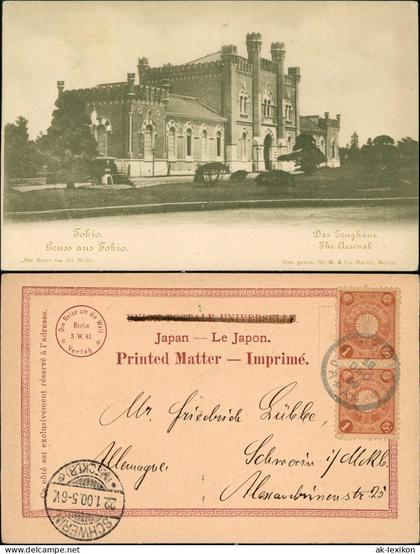 Tokio.
Gruss aus Tokio.
Das Zeughaus.
The Arsenal.
„Die Reise um die Welt“.
Ges. gesch. für M. & Co. Nachf., Berlin.
Die Reise um die Welt
Berlin
S.W. 47.
Verlag
Ce côté est exclusivement réservé à l'adresse.
UNION POSTALE UNIVERSELLE
Japan — Le Japon.
Printed Matter — Imprimé.
Mr. Friedrich Lübbe,
Allemagne.
Schwerin i/Mckl.
Alexandrinenstr 25
SCHWERIN
22.1.00.5-6V.
(MECKLB.)
© www.ak-lexikon.de